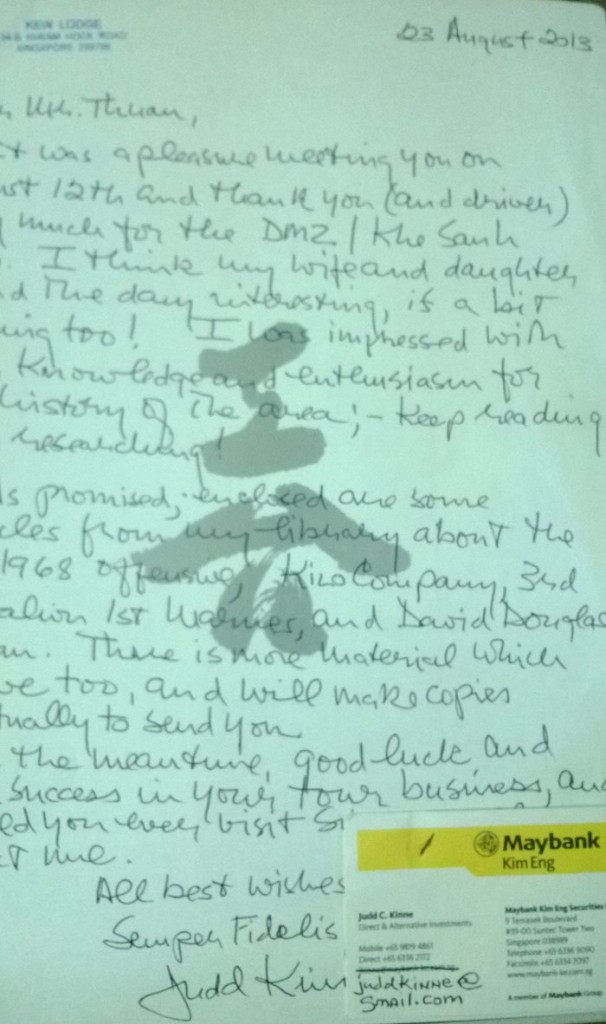 KEW LODGE
ROAD
SINGAPORE
03 August 2013
Mr. Thuan,
It was a pleasure meeting you on
ust 12th and thank you (and driver)
much for the DMZ / Khe Sanh
. I think my wife and daughter
d the day interesting, if a bit
ing too! I was impressed with
Knowledge and enthusiasm for
history of the area; - Keep reading
researching!
s promised, enclosed are some
cles from my library about the
1968 offensive, Kilo Company, 3rd
alion 1st Marines, and David Douglas
an. There is more material which
ve too, and will make copies
tually to send you
the meantime, good luck and
success in your tour business, and
ed you ever visit Si
t me.
All best wishes
Semper Fidelis
Judd Kinn
Maybank
Kim Eng
Judd C. Kinne
Direct & Alternative Investments
Mobile +65 9819 4861
Direct +65 6336 2172
juddkinne@
gmail.com
Maybank Kim Eng Securities
9 Temasek Boulevard
#39-00 Suntec Tower Two
Singapore 038989
Telephone +65 6336 9090
Facsimile +65 6334
www.maybank-ke.com.sg
A member of Maybank Group